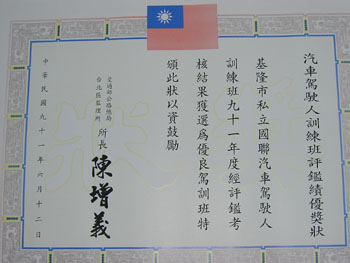 汽車駕駛人訓練班評鑑績優獎狀
基隆市私立國聯汽車駕駛人
訓練班九十一年度經評鑑考
核結果獲選為優良駕訓班特
頒此狀以資鼓勵
交通部公路總局
台北區監理所
所長
陳增義
中華民國九十一年六月十二日